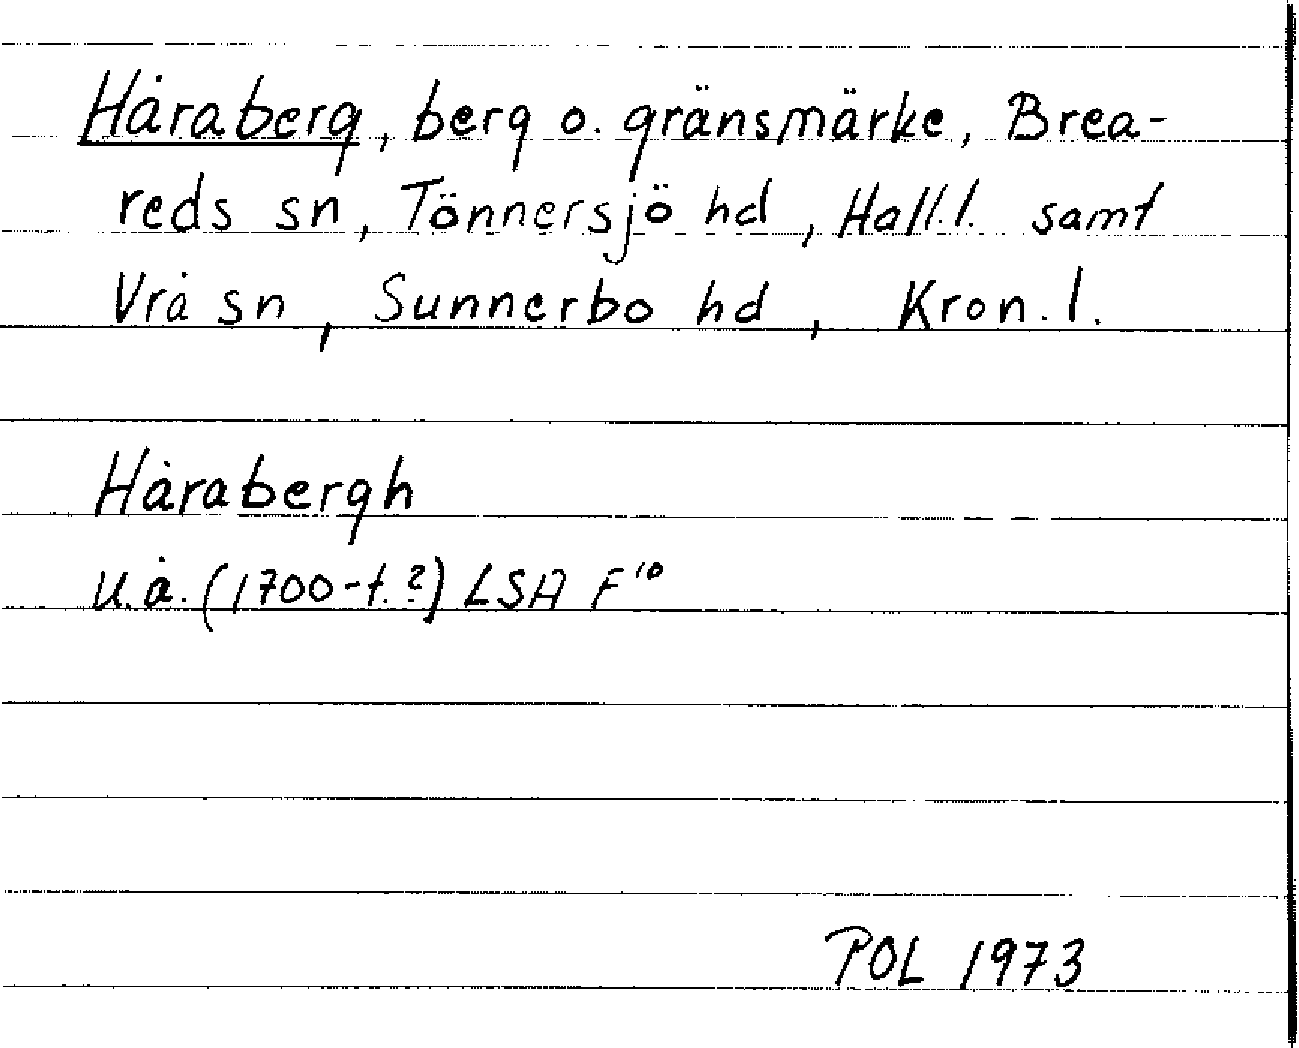 Håraberg, berg o. gränsmärke, Brea-
reds sn, Tönnersjö hd, Hall.l. samt
Vrå sn, Sunnerbo hd, Kron.l.
Hårabergh
u.å. (1700-t.?) LSA F¹⁰
POL 1973